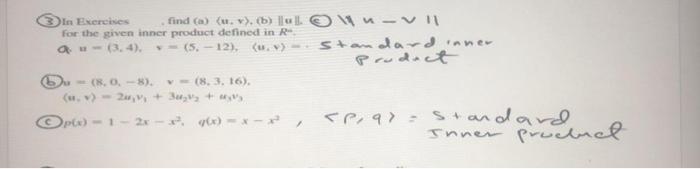 ③In Exercises , find (a) ⟨u, v⟩, (b) ||u||. ⓒ ||u-v||
for the given inner product defined in Rⁿ.
a. u = (3, 4), v = (5, −12), ⟨u, v⟩ = · standard inner product
ⓑu = (8, 0, −8), v = (8, 3, 16),
⟨u, v⟩ = 2u₁v₁ + 3u₂v₂ + u₃v₃
ⓒp(x) = 1 − 2x − x², q(x) = x − x² , <p,q> = standard Inner product